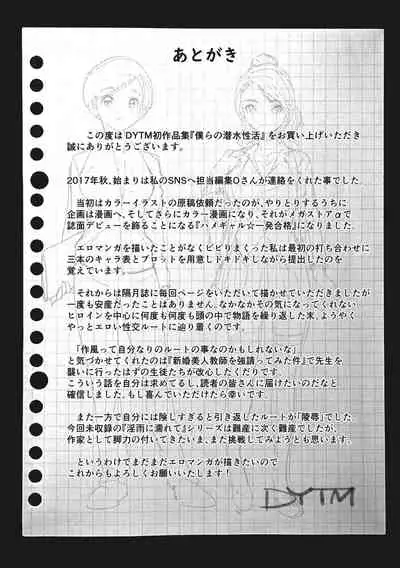 あとがき
この度は DYTM初作品集『僕らの潜水性活』をお買い上げいただき
誠にありがとうございます。
2017年秋、始まりは私のSNSへ担当編集Oさんが連絡をくれた事でした。
当初はカラーイラストの原稿依頼だったのが、やりとりするうちに
企画は漫画へ、そしてさらにカラー漫画になり、それがメガストアαで
誌面デビューを飾ることになる『ハメキャル☆一発合格』になりました。
エロマンガを描いたことがなくビビりまくった私は最初の打ち合わせに
三本のキャラ表とプロットを用意しドキドキしながら提出したのを
覚えています。
それからは隔月誌に毎回ページをいただいて描かせていただきましたが
一度も安産だったことはありません。なかなかその気になってくれない
ヒロインを中心に何度も何度も頭の中で物語を繰り返した末、ようやく
やっとエロい性交ルートに辿り着くのです。
「作風って自分なりのルートの事なのかもしれないな」
と気づかせてくれたのは『新婚美人教師を強請ってみた件』で先生を
襲いに行ったはずの生徒たちが改心したくだりです。
こういう話を自分は求めてるし、読者の皆さんに届けたいのだなと
確信しました。もし喜んでいただけたら幸いです。
また一方で自分には険しすぎると引き返したルートが「陵辱」でした
今回未収録の『淫雨に濡れて』シリーズは難産に次ぐ難産でしたが、
作家として脚力の付いてきたいま、また挑戦してみようとも思います。
というわけでまだまだエロマンガが描きたいので
これからもよろしくお願いいたします!
DYTM